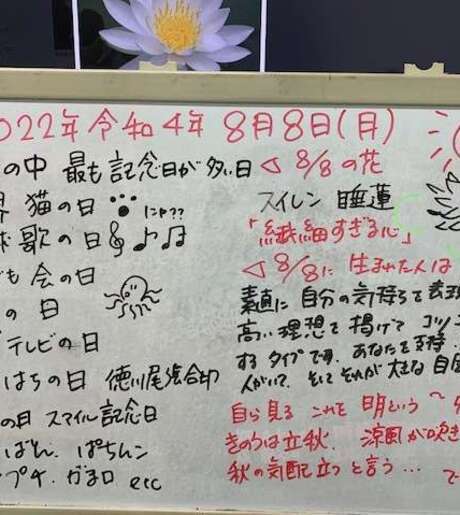 2022年 令和4年 8月8日(月)
の中 最も記念日が多い日
界 猫の日 にゃ??
歌の日
ども会の日
の日
テレビの日
はちの日 徳川尾張合印
の日 スマイル記念日
ぱちんこ
プチ、がま口 etc
◁ 8/8の花
スイレン 睡蓮
「繊細すぎる心」
◁ 8/8に 生まれた人は
素直に 自分の気持ちを表現
高い理想を掲げて コツ
するタイプです。あなたを支持
人がいて、そして それが大きな自
自ら見る これを 明という 〜
きのうは立秋、涼風が吹き
秋の気配立つと言う…
で